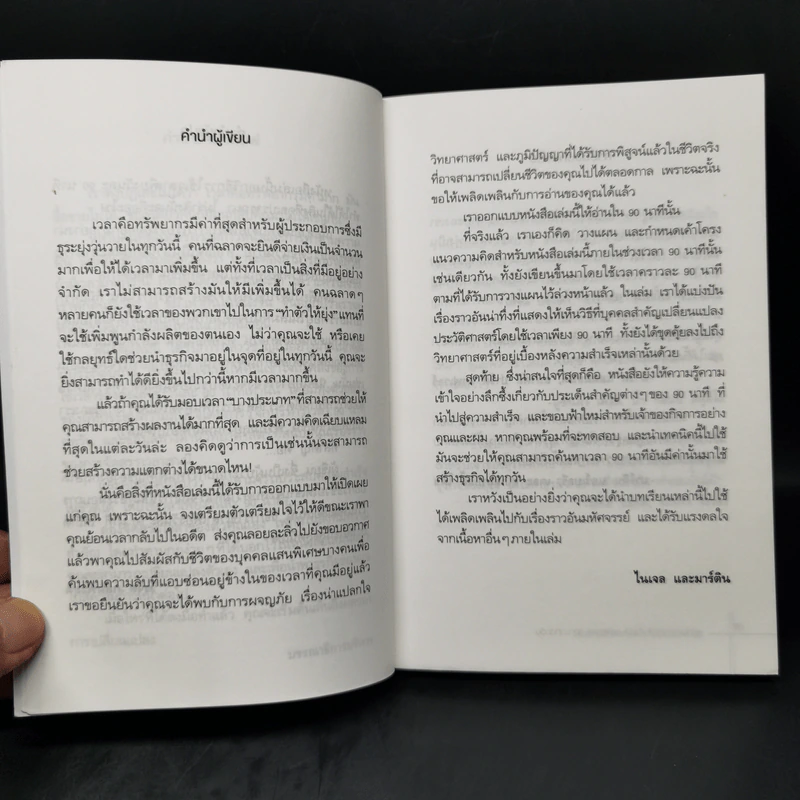 คำนำผู้เขียน
เวลาคือทรัพยากรมีค่าที่สุดสำหรับผู้ประกอบการซึ่งมี
ธุระยุ่งวุ่นวายในทุกวันนี้ คนที่ฉลาดจะยินดีจ่ายเงินเป็นจำนวน
มากเพื่อให้ได้เวลามาเพิ่มขึ้น แต่ทั้งที่เวลาเป็นสิ่งที่มีอยู่อย่าง
จำกัด เราไม่สามารถสร้างมันให้มีเพิ่มขึ้นได้ คนฉลาดๆ
หลายคนก็ยังใช้เวลาของพวกเขาไปในการ "ทำตัวให้ยุ่ง" แทนที่
จะใช้เพิ่มพูนกำลังผลิตของตนเอง ไม่ว่าคุณจะใช้ หรือเคย
ใช้กลยุทธ์ใดช่วยนำธุรกิจมาอยู่ในจุดที่อยู่ในทุกวันนี้ คุณจะ
ยิ่งสามารถทำได้ดียิ่งขึ้นไปกว่านี้หากมีเวลามากขึ้น
แล้วถ้าคุณได้รับมอบเวลา "บางประเภท" ที่สามารถช่วยให้
คุณสามารถสร้างผลงานได้มากที่สุด และมีความคิดเฉียบแหลม
ที่สุดในแต่ละวันล่ะ ลองคิดดูว่าการเป็นเช่นนั้นจะสามารถ
ช่วยสร้างความแตกต่างได้ขนาดไหน!
นั่นคือสิ่งที่หนังสือเล่มนี้ได้รับการออกแบบมาให้เปิดเผย
แก่คุณ เพราะฉะนั้น จงเตรียมตัวเตรียมใจไว้ให้ดีขณะเราพา
คุณย้อนเวลากลับไปในอดีต ส่งคุณลอยละลิ่วไปยังขอบอวกาศ
แล้วพาคุณไปสัมผัสกับชีวิตของบุคคลแสนพิเศษบางคนเพื่อ
ค้นพบความลับที่แอบซ่อนอยู่ข้างในของเวลาที่คุณมีอยู่แล้ว
เราขอยืนยันว่าคุณจะได้พบกับการผจญภัย เรื่องน่าแปลกใจ
วิทยาศาสตร์ และภูมิปัญญาที่ได้รับการพิสูจน์แล้วในชีวิตจริง
ที่อาจสามารถเปลี่ยนชีวิตของคุณไปได้ตลอดกาล เพราะฉะนั้น
ขอให้เพลิดเพลินกับการอ่านของคุณได้แล้ว
เราออกแบบหนังสือเล่มนี้ให้อ่านใน 90 นาทีนั้น
ที่จริงแล้ว เราเองก็คิด วางแผน และกำหนดเค้าโครง
แนวความคิดสำหรับหนังสือเล่มนี้ภายในช่วงเวลา 90 นาทีนั้น
เช่นเดียวกัน ทั้งยังเขียนขึ้นมาโดยใช้เวลาคราวละ 90 นาที
ตามที่ได้รับการวางแผนไว้ล่วงหน้าแล้ว ในเล่ม เราได้แบ่งปัน
เรื่องราวอันน่าทึ่งที่แสดงให้เห็นวิธีที่บุคคลสำคัญเปลี่ยนแปลง
ประวัติศาสตร์โดยใช้เวลาเพียง 90 นาที ทั้งยังได้ขุดคุ้ยลงไปถึง
วิทยาศาสตร์ที่อยู่เบื้องหลังความสำเร็จเหล่านั้นด้วย
สุดท้าย ซึ่งน่าสนใจที่สุดก็คือ หนังสือยังให้ความรู้ความ
เข้าใจอย่างลึกซึ้งเกี่ยวกับประเด็นสำคัญต่างๆ ของ 90 นาที ที่
นำไปสู่ความสำเร็จ และขอบฟ้าใหม่สำหรับเจ้าของกิจการอย่าง
คุณและผม หากคุณพร้อมที่จะทดสอบ และนำเทคนิคนี้ไปใช้
มันจะช่วยให้คุณสามารถค้นหาเวลา 90 นาทีอันมีค่านั้นมาใช้
สร้างธุรกิจได้ทุกวัน
เราหวังเป็นอย่างยิ่งว่าคุณจะได้นำบทเรียนเหล่านี้ไปใช้
ได้เพลิดเพลินไปกับเรื่องราวอันมหัศจรรย์ และได้รับแรงดลใจ
จากเนื้อหาอื่นๆ ภายในเล่ม
ไนเจล และมาร์ติน